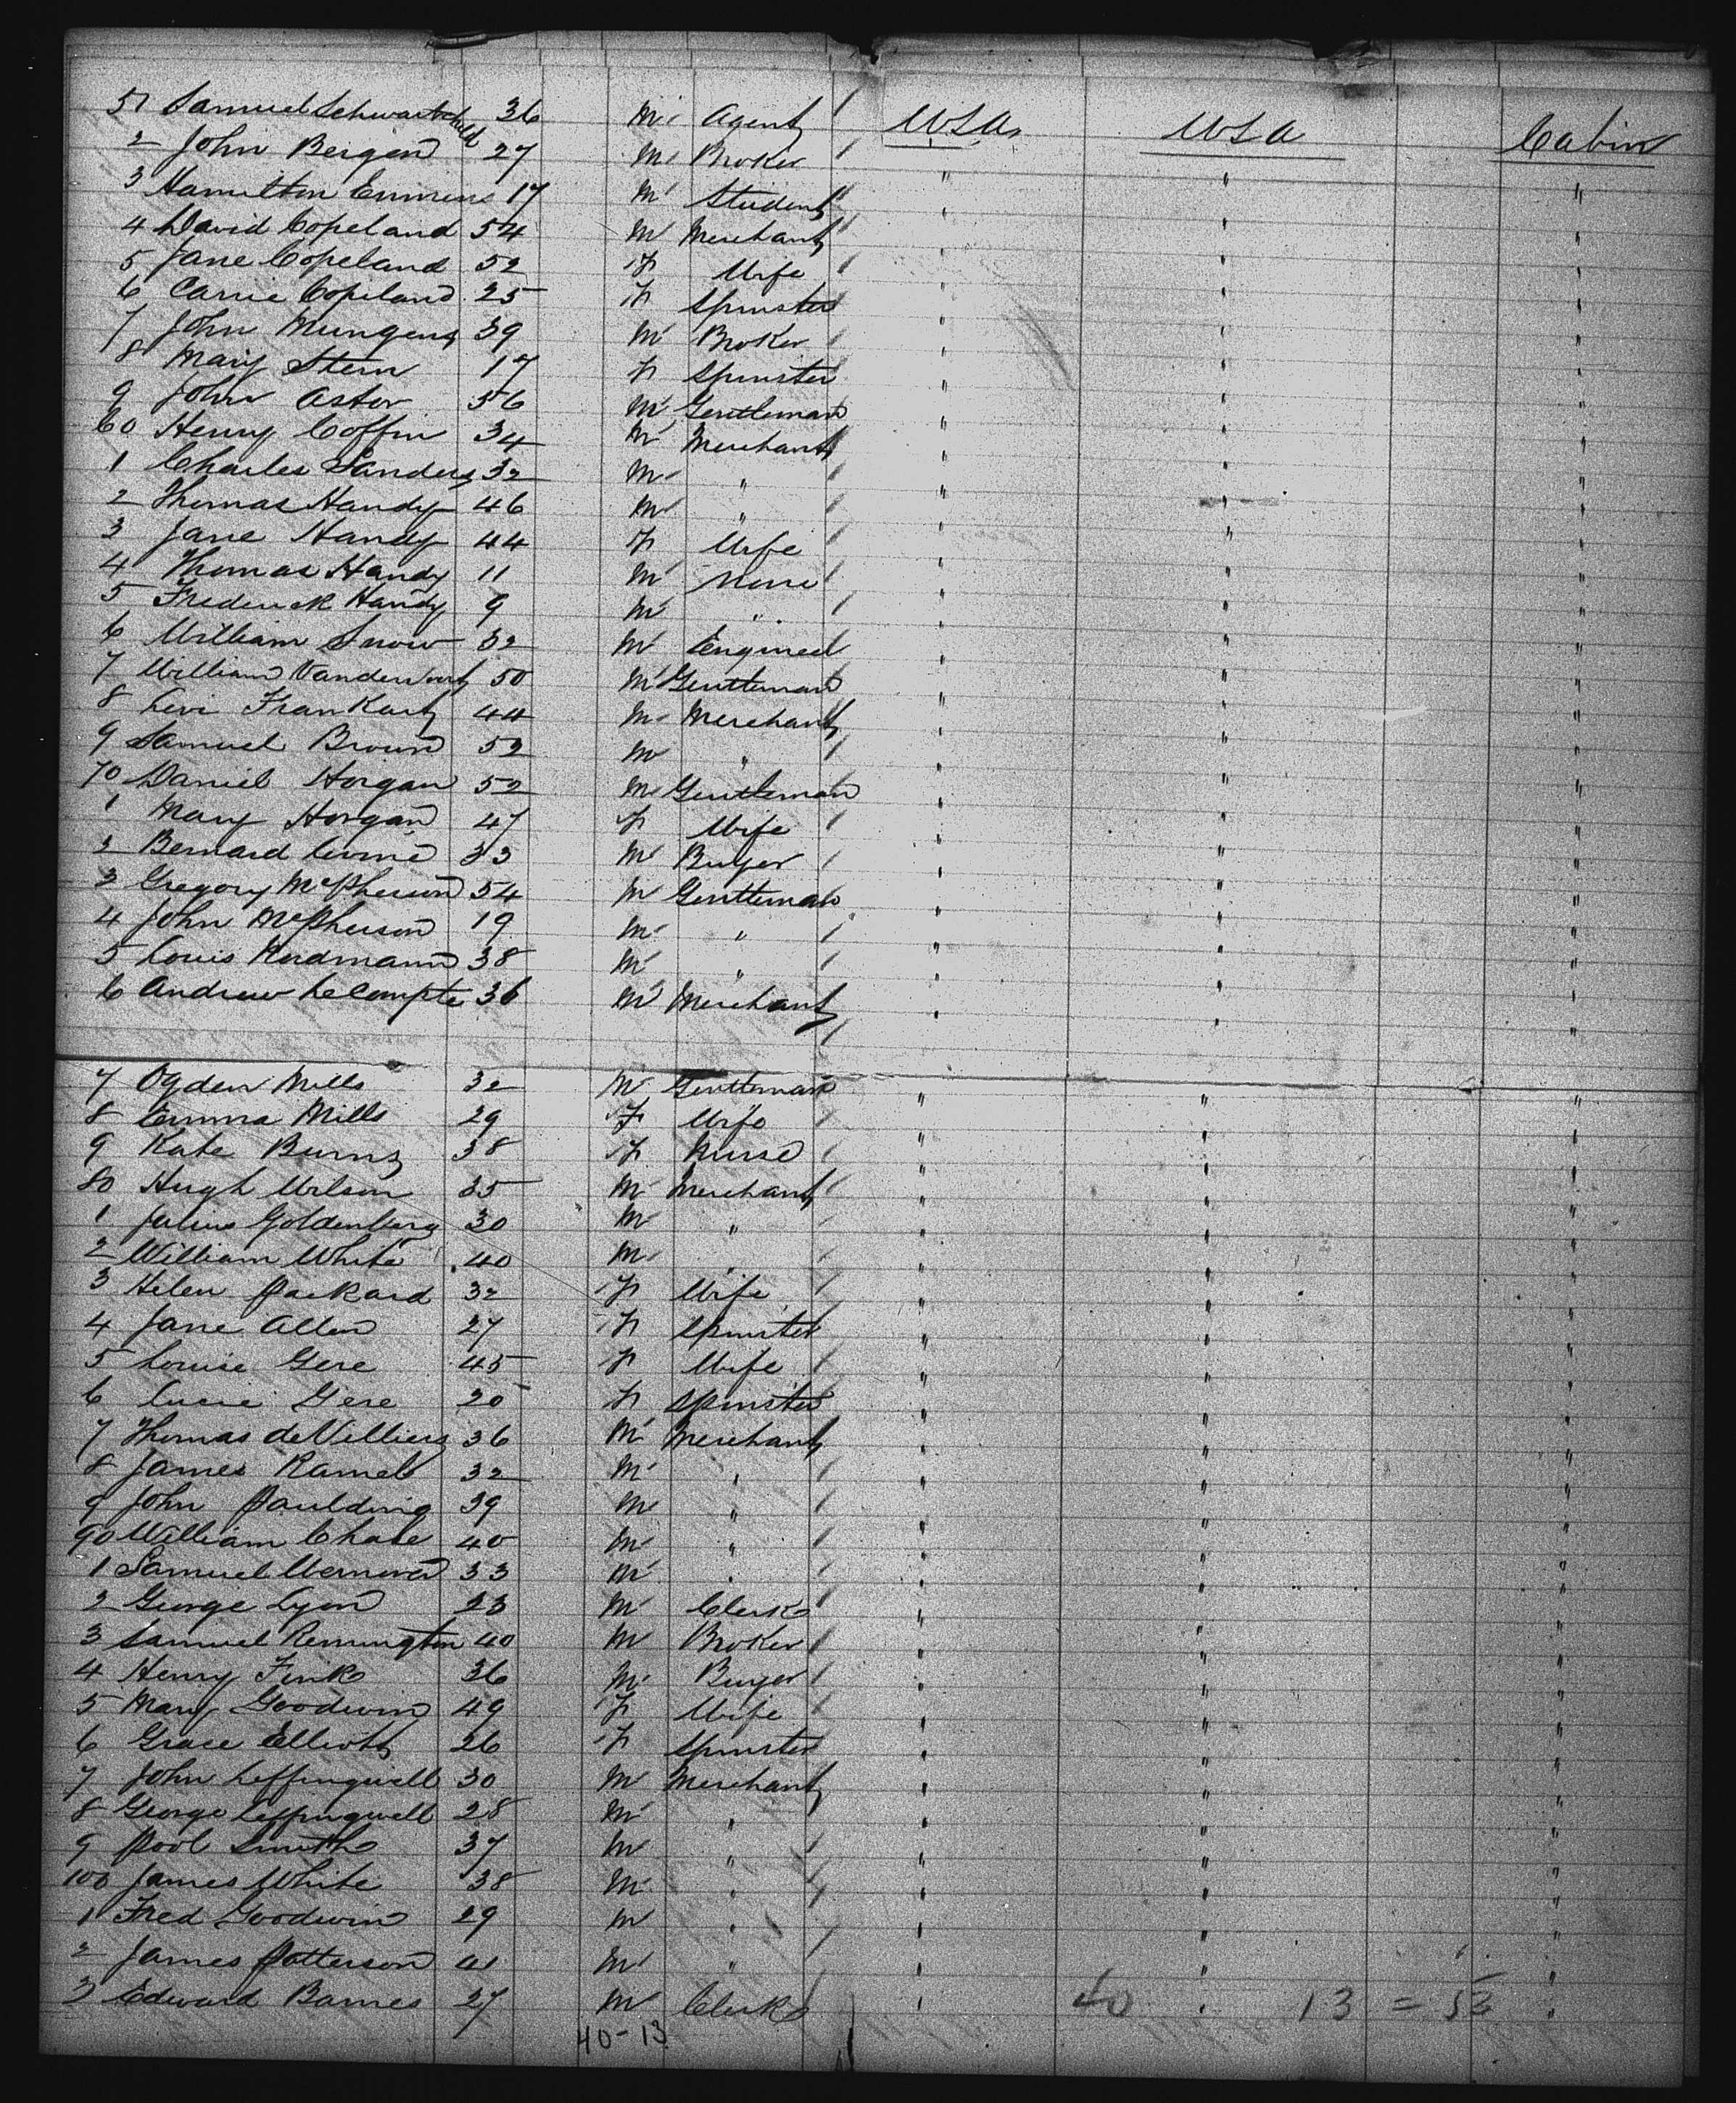 51 Samuel Schwartzchild 36 M Agent / USA USA Cabin
2 John Bergen 27 M Broker / " " "
3 Hamilton Emmens 17 M Student / " " "
4 David Copeland 54 M Merchant / " " "
5 Jane Copeland 52 F Wife / " " "
6 Carrie Copeland 25 F Spinster / " " "
7 John 39 M Broker / " " "
8 Mary Stern 17 F Spinster / " " "
9 John Astor 56 M Gentleman / " " "
60 Henry Coffin 34 M Merchant / " " "
1 Charles Sanders 32 M " / " " "
2 Thomas Handy 46 M " / " " "
3 Jane Handy 44 F Wife / " " "
4 Thomas Handy 11 M None / " " "
5 Frederick Handy 9 M " / " " "
6 William Snow 32 M Engineer / " " "
7 William Vandervort 50 M Gentleman / " " "
8 Levi Frankart 44 M Merchant / " " "
9 Samuel Brown 52 M " / " " "
70 Daniel Horgan 52 M Gentleman / " " "
1 Mary Horgan 47 F Wife / " " "
2 Bernard Levine 33 M Buyer / " " "
3 Gregory McPherson 54 M Gentleman / " " "
4 John McPherson 19 M " / " " "
5 Louis 38 M " / " " "
6 Andrew LeCompte 36 M Merchant / " " "
7 Ogden Mills 32 M Gentleman / " " "
8 Emma Mills 29 F Wife / " " "
9 Kate Burns 38 F Nurse / " " "
80 Hugh Wilson 35 M Merchant / " " "
1 Julius Goldenberg 30 M " / " " "
2 William White 40 M " / " " "
3 Helen Packard 32 F Wife / " " "
4 Jane Allen 27 F Spinster / " " "
5 Louise Gere 45 F Wife / " " "
6 Lucie Gere 20 F Spinster / " " "
7 Thomas deVilliers 36 M Merchant / " " "
8 James 32 M " / " " "
9 John Paulding 39 M " / " " "
90 William Chase 40 M " / " " "
1 Samuel 33 M " / " " "
2 George Lyon 23 M Clerk / " " "
3 Samuel Remington 40 M Broker / " " "
4 Henry Fink 36 M Buyer / " " "
5 Mary Goodwin 49 F Wife / " " "
6 Grace Elliott 26 F Spinster / " " "
7 John Leffingwell 30 M Merchant / " " "
8 George Leffingwell 28 M " / " " "
9 Pool Smith 37 M " / " " "
100 James White 38 M " / " " "
1 Fred Goodwin 29 M " / " " "
2 James Patterson 41 M " / " " "
3 Edward Barnes 27 M Clerk / " " "
40 13 = 53
40-13